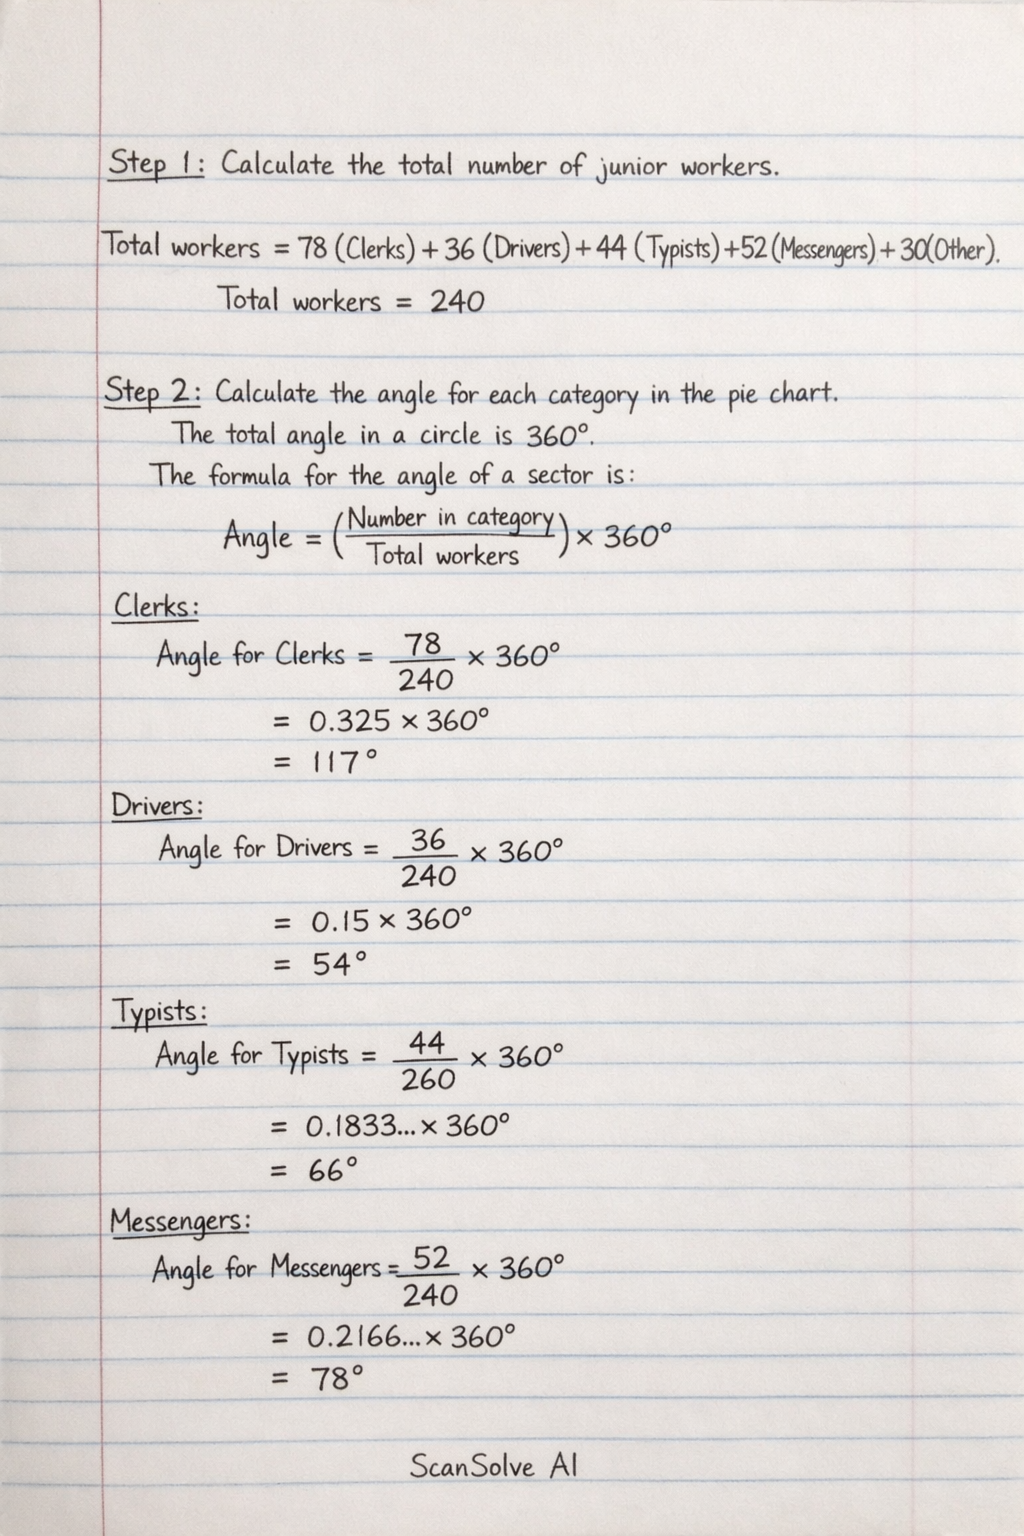 Step 1: Calculate the total number of junior workers.
Total workers = 78 (Clerks) + 36 (Drivers) + 44 (Typists) + 52 (Messengers) + 30 (Other).
Total workers = 240
Step 2: Calculate the angle for each category in the pie chart.
The total angle in a circle is 360°.
The formula for the angle of a sector is:
Angle = (Number in category / Total workers) × 360°
Clerks:
Angle for Clerks = 78/240 × 360°
= 0.325 × 360°
= 117°
Drivers:
Angle for Drivers = 36/240 × 360°
= 0.15 × 360°
= 54°
Typists:
Angle for Typists = 44/260 × 360°
= 0.1833... × 360°
= 66°
Messengers:
Angle for Messengers = 52/240 × 360°
= 0.2166... × 360°
= 78°
ScanSolve AI